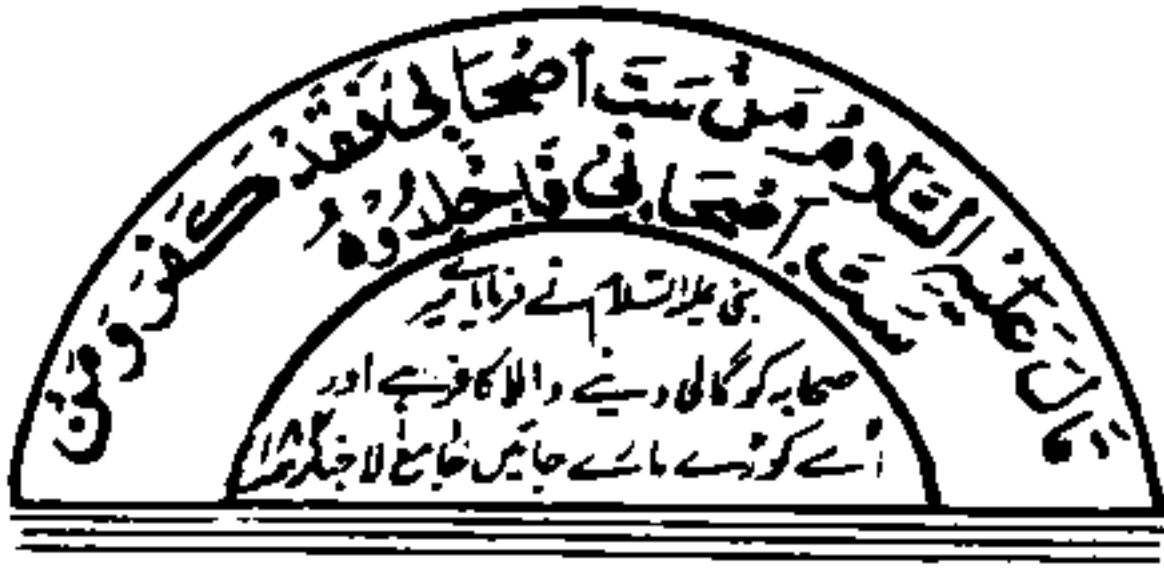 قَالَ عَلَيْهِ السَّلَامُ مَنْ سَبَّ أَصْحَابِي فَقَدْ كَفَرَ وَ مَنْ
سَبَّ أَصْحَابِي فَاجْلِدُوْهُ
نبی علیہ السلام نے فرمایا میرے
صحابہ کو گالی دینے والا کافر ہے اور
اُسے کوڑے مارے جائیں جامع الاخبار